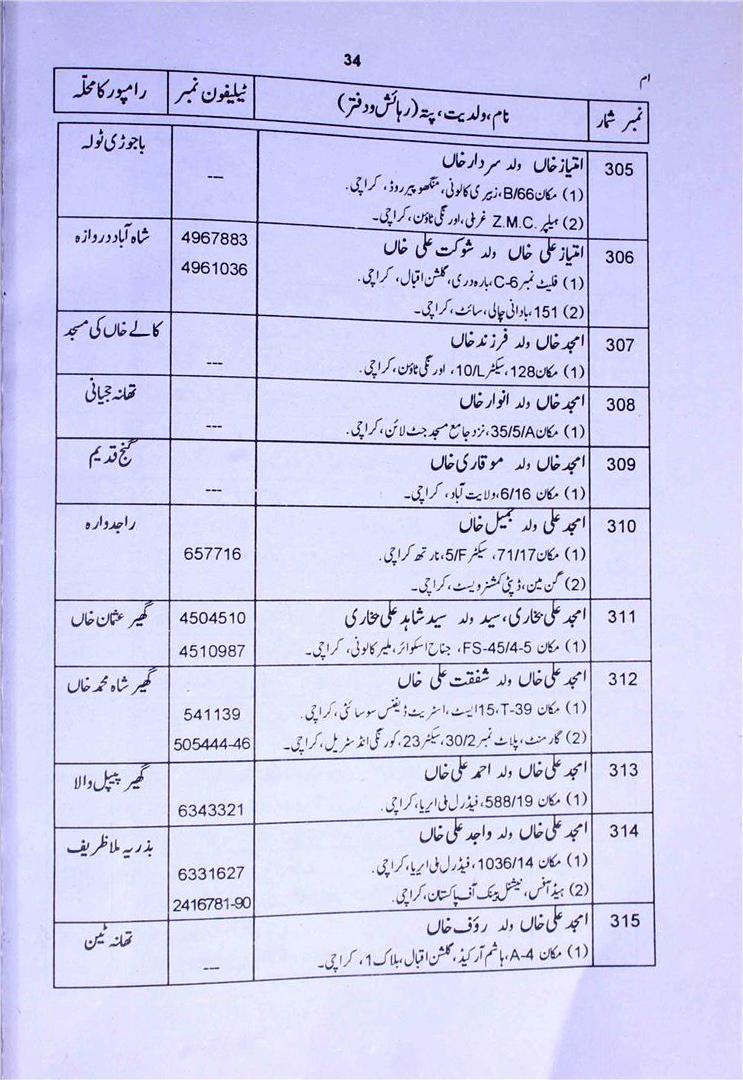 34
ام
نمبر شمار	نام، ولدیت، پتہ (رہائش و دفتر)	ٹیلیفون نمبر	رامپور کا محلّہ
305	امتیاز خاں ولد سردار خاں	---	باجوڑی ٹولہ
(1) مکان B/66، زبیری کالونی، منگھوپیر روڈ، کراچی.
(2) ہیلپر Z.M.C. غربی، اورنگی ٹاؤن، کراچی۔
306	امتیاز علی خاں ولد شوکت علی خاں	4967883	شاہ آباد دروازہ
(1) فلیٹ نمبر C-6، بارہ دری، گلشن اقبال، کراچی.	4961036
(2) 151، باوانی چالی، سائٹ، کراچی۔
307	امجد خاں ولد فرزند خاں	---	کالے خاں کی مسجد
(1) مکان 128، سیکٹر 10/L، اورنگی ٹاؤن، کراچی.
308	امجد خاں ولد انوار خاں	---	تھانہ
(1) مکان 35/5/A، نزد جامع مسجد جٹ لائن، کراچی.
309	امجد خاں ولد خاں	---	گنج قدیم
(1) مکان 6/16، ولایت آباد، کراچی۔
310	امجد علی ولد جمیل خاں	راجدوارہ
(1) مکان 71/17، سیکٹر 5/F، نارتھ کراچی.	657716
(2) گن مین، ڈپٹی کمشنر ویسٹ، کراچی۔
311	امجد علی بخاری، سید ولد سید شاہد علی بخاری	4504510	گھیر عثمان خاں
(1) مکان FS-45/4-5، جناح اسکوائر، ملیر کالونی، کراچی۔	4510987
312	امجد علی خاں ولد شفقت علی خاں	گھیر شاہ محمد خاں
(1) مکان T-39، 15 ایسٹ، اسٹریٹ ڈیفنس سوسائٹی، کراچی.	541139
(2) گارمنٹ، پلاٹ نمبر 30/2، سیکٹر 23، کورنگی انڈسٹریل، کراچی۔	505444-46
313	امجد علی خاں ولد احمد علی خاں	گھیر پیپل والا
(1) مکان 588/19، فیڈرل بی ایریا، کراچی.	6343321
314	امجد علی خاں ولد واجد علی خاں	بذریہ ملا ظریف
(1) مکان 1036/14، فیڈرل بی ایریا، کراچی.	6331627
(2) ہیڈ آفس، نیشنل بینک آف پاکستان، کراچی.	2416781-90
315	امجد علی خاں ولد رؤف خاں	---	تھانہ ٹین
(1) مکان A-4، ہاشم آرکیڈ، گلشن اقبال، بلاک 1، کراچی۔